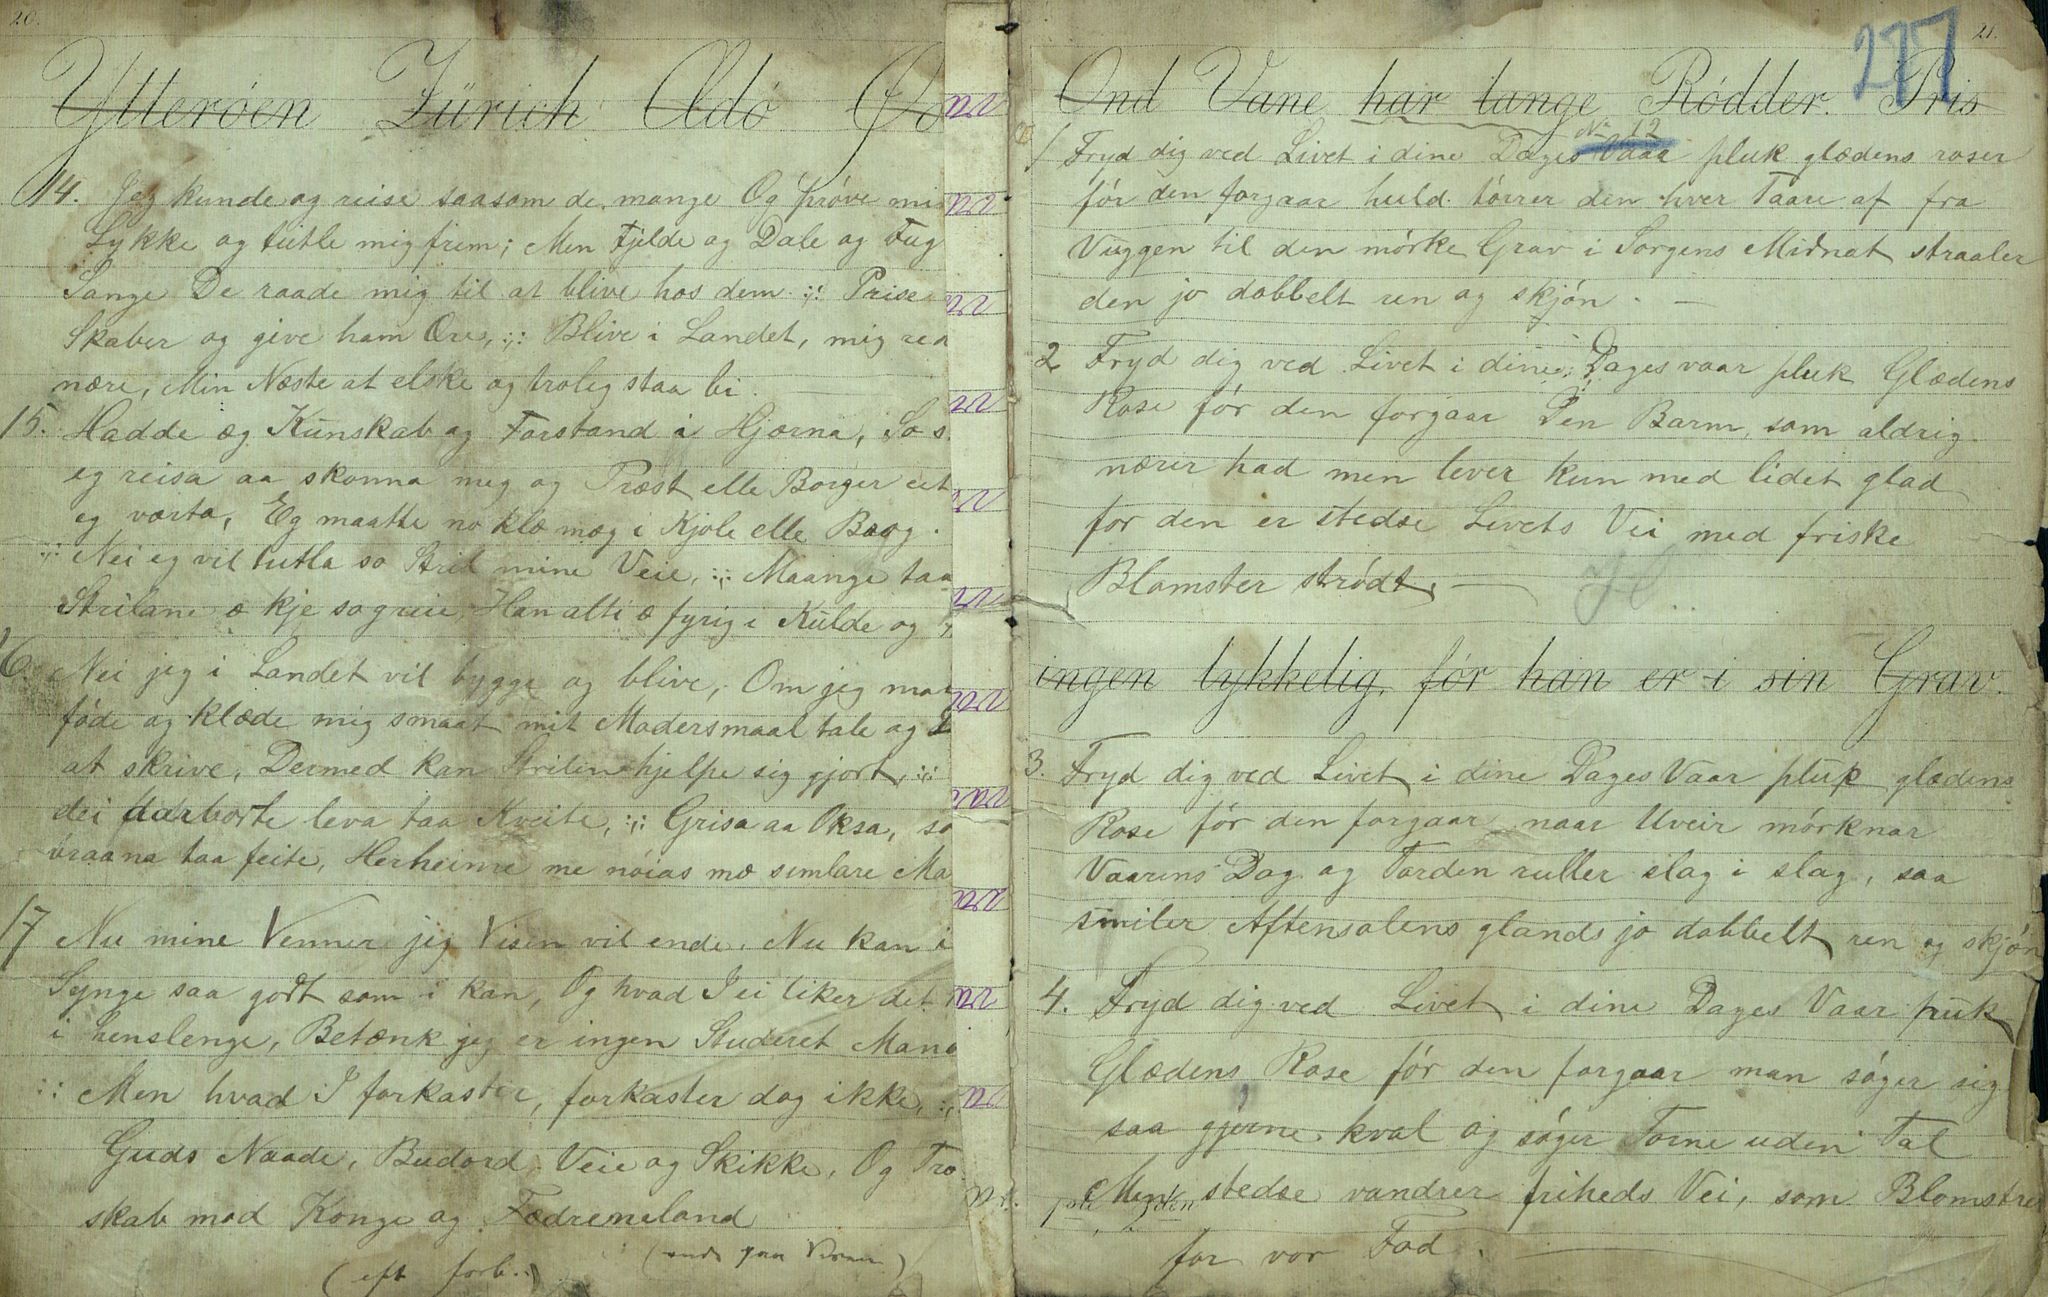 20.
Ytterøen Zürich Adó Ø
14. Jeg kunde og reise saasom de mange Og prøve mi
Lykke og tutle mig frem; Men Fjelde og Dale og Fug
Sange De raade mig til at blive hos dem :,: Prise
Skaber og give ham Ære, :,: Blive i Landet, mig red
nære, Min Næste at elske og trolig staa bi. —
15. Hadde æg Kunskab og Forstand i Hjærna, So s
eg reisa aa skonna meg og Præst elle Borger eit
eg værta, Eg maatte no klæ mæg i Kjole elle Baag.
:,: Nei eg vil tutla so Stril mine Veie, :,: Maange taa
Strilane æ kje so greie, Han alti æ fyrig i Kulde og
16. Nei jeg i Landet vil bygge og blive, Om jeg maa
føde og klæde mig smaat mit Modersmaal tale og
at skrive, Dermed kan Strilin hjelpe sig gjort, :,:
dei dærborte leva taa Kveite, :,: Grisa aa Oksa, so
braana taa feite, Herheime me nøias mæ simlare Ma
17 Nu mine Venner jeg Visen vil ende. Nu kan i
Synge saa godt som i kan, Og hvad I ei liker det
i henslenge, Betænk jeg er ingen Studeret Mand
:,: Men hvad I forkaster, forkaster dog ikke, :,:
Guds Naade, Budord, Veie og Skikke, Og Tro
skab mod Konge og Fædreneland
(eft forb.)
21.
277
Ond Vane har lange Rødder. Pris
No 12
1 Fryd dig ved Livet i dine Dages Vaar pluk glædens roser
før den forgaar huld tørrer den hver Taare af fra
Vuggen til den mørke Grav i Sorgens Midnat straaler
den jo dobbelt ren og skjøn. —
2 Fryd dig ved Livet i dine Dages vaar pluk Glædens
Rose før den forgaar Den Barm, som aldrig
nærer had men lever kun med lidet glad
for den er stedse Livets Vei med friske
Blomster strødt. —
ingen lykkelig, før han er i sin Grav.
3. Fryd dig ved Livet i dine Dages Vaar pluk glædens
Rose før den forgaar naar Uveir mørknar
Vaarens Dag og Torden ruller slag i slag, saa
smiler Aftensolens glands jo dobbelt ren og skjøn
4. Fryd dig ved Livet i dine Dages Vaar pluk
Glædens Rose før den forgaar man søger sig
saa gjerne kval og søger Torne uden Tal
Men stedse vandrer friheds Vei, som Blomstrer
for vor Fod. —